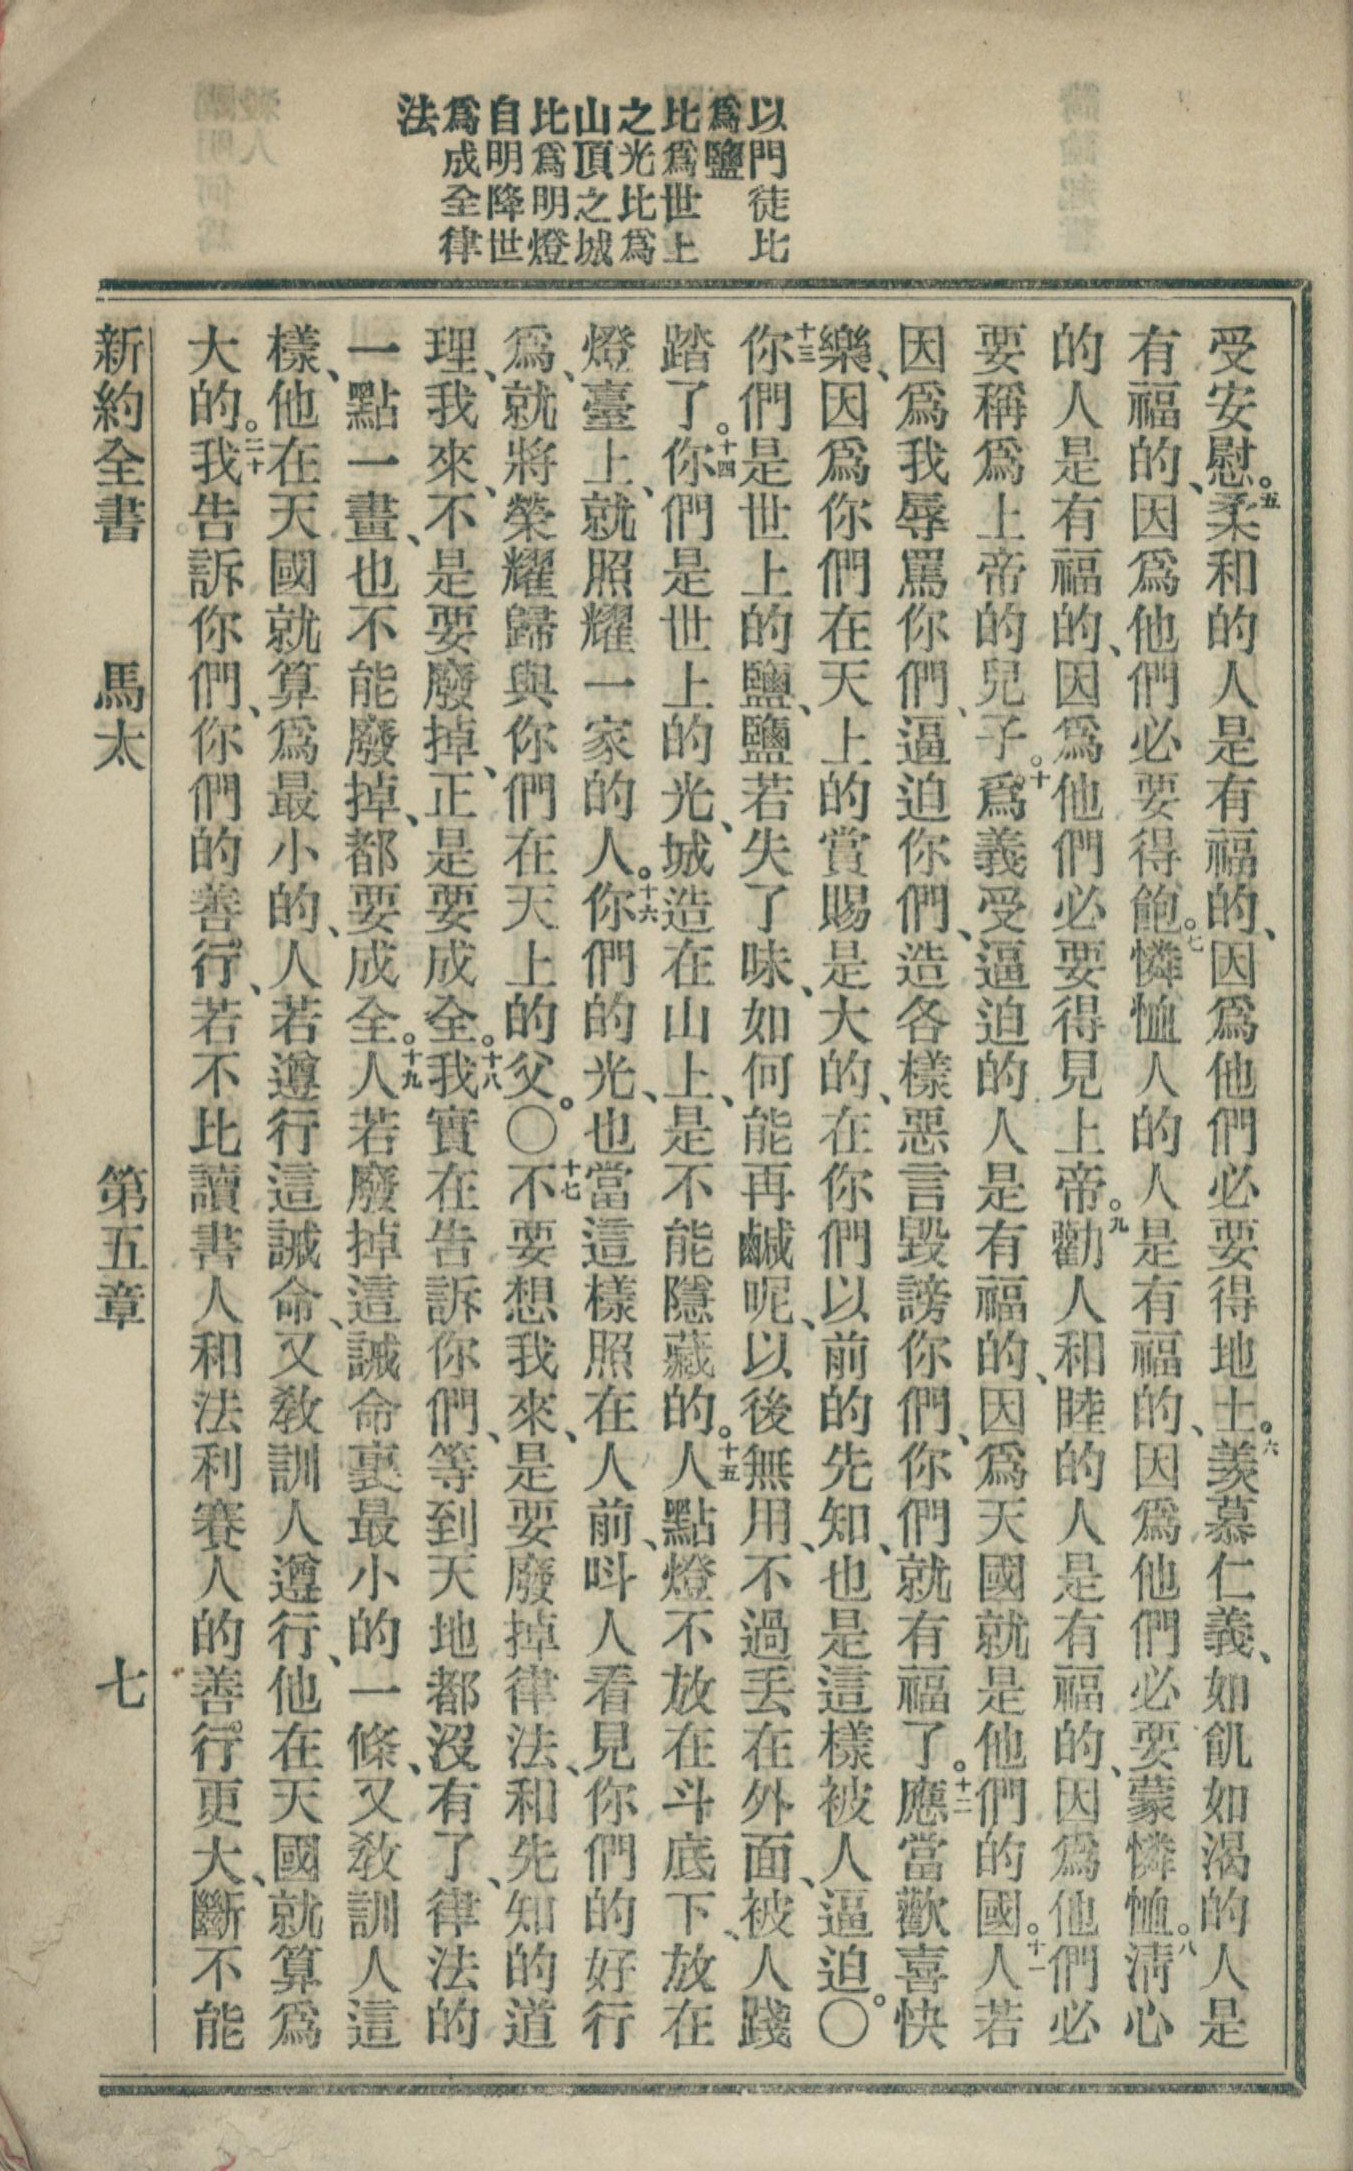 以門徒比
爲鹽
比爲世上
之光比爲
山頂之城
比爲明燈
自明降世
爲成全律
法
受安慰。五柔和的人是有福的、因爲他們必要得地土。六羨慕仁義、如飢如渴的人是
有福的、因爲他們必要得飽。七憐恤人的人是有福的、因爲他們必要蒙憐恤。八淸心
的人是有福的、因爲他們必要得見上帝。九勸人和睦的人是有福的、因爲他們必
要稱爲上帝的兒子。十爲義受逼迫的人是有福的、因爲天國就是他們的國。十一人若
因爲我辱罵你們、逼迫你們、造各樣惡言毀謗你們、你們就有福了。十二應當歡喜快
樂、因爲你們在天上的賞賜是大的、在你們以前的先知、也是這樣被人逼迫。〇
十三你們是世上的鹽、鹽若失了味、如何能再鹹呢、以後無用、不過丢在外面、被人踐
踏了。十四你們是世上的光、城造在山上、是不能隱藏的。十五人點燈不放在斗底下、放在
燈臺上、就照耀一家的人。十六你們的光、也當這樣照在人前、呌人看見你們的好行
爲、就將榮耀歸與你們在天上的父。〇十七不要想我來、是要廢掉律法、和先知的道
理、我來、不是要廢掉、正是要成全。十八我實在告訴你們、等到天地都沒有了、律法的
一點一畫、也不能廢掉、都要成全。十九人若廢掉這誡命裏最小的一條、又敎訓人這
樣、他在天國就算爲最小的、人若遵行這誡命、又敎訓人遵行、他在天國就算爲
大的。二十我告訴你們、你們的善行、若不比讀書人和法利賽人的善行更大、斷不能
新約全書 馬太 第五章 七